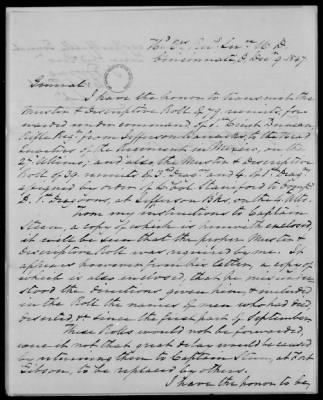 Cincinnati, O. Decr 9 1847
General,
I have the honor to transmit the
Muster & Descriptive Roll of 77 recruits, for-
warded under command of 1st Lieut.
Rifle Regt from Jefferson Barracks, to the Head
Quarters of the Regiment in Mexico, on the
27 Ultimo; and also the Muster & Description
Roll of 39 recruits &
assigned by order of Col. to
at Jefferson Bks, on the 4
From my instructions to Captain
a copy of which is herewith enclosed,
it will be seen that the proper Muster &
Description Roll was required by me. It
appears however from his letter, a copy of
which is also enclosed, that he misunder-
stood the directions given him, & included
in the Roll the names of men who had died,
deserted &c since the first part of September
These Rolls would not be forwarded,
were it not that great delay would be caused
by returning them to Captain at Fort
Gibson, to be replaced by others.
I have the honor to be,